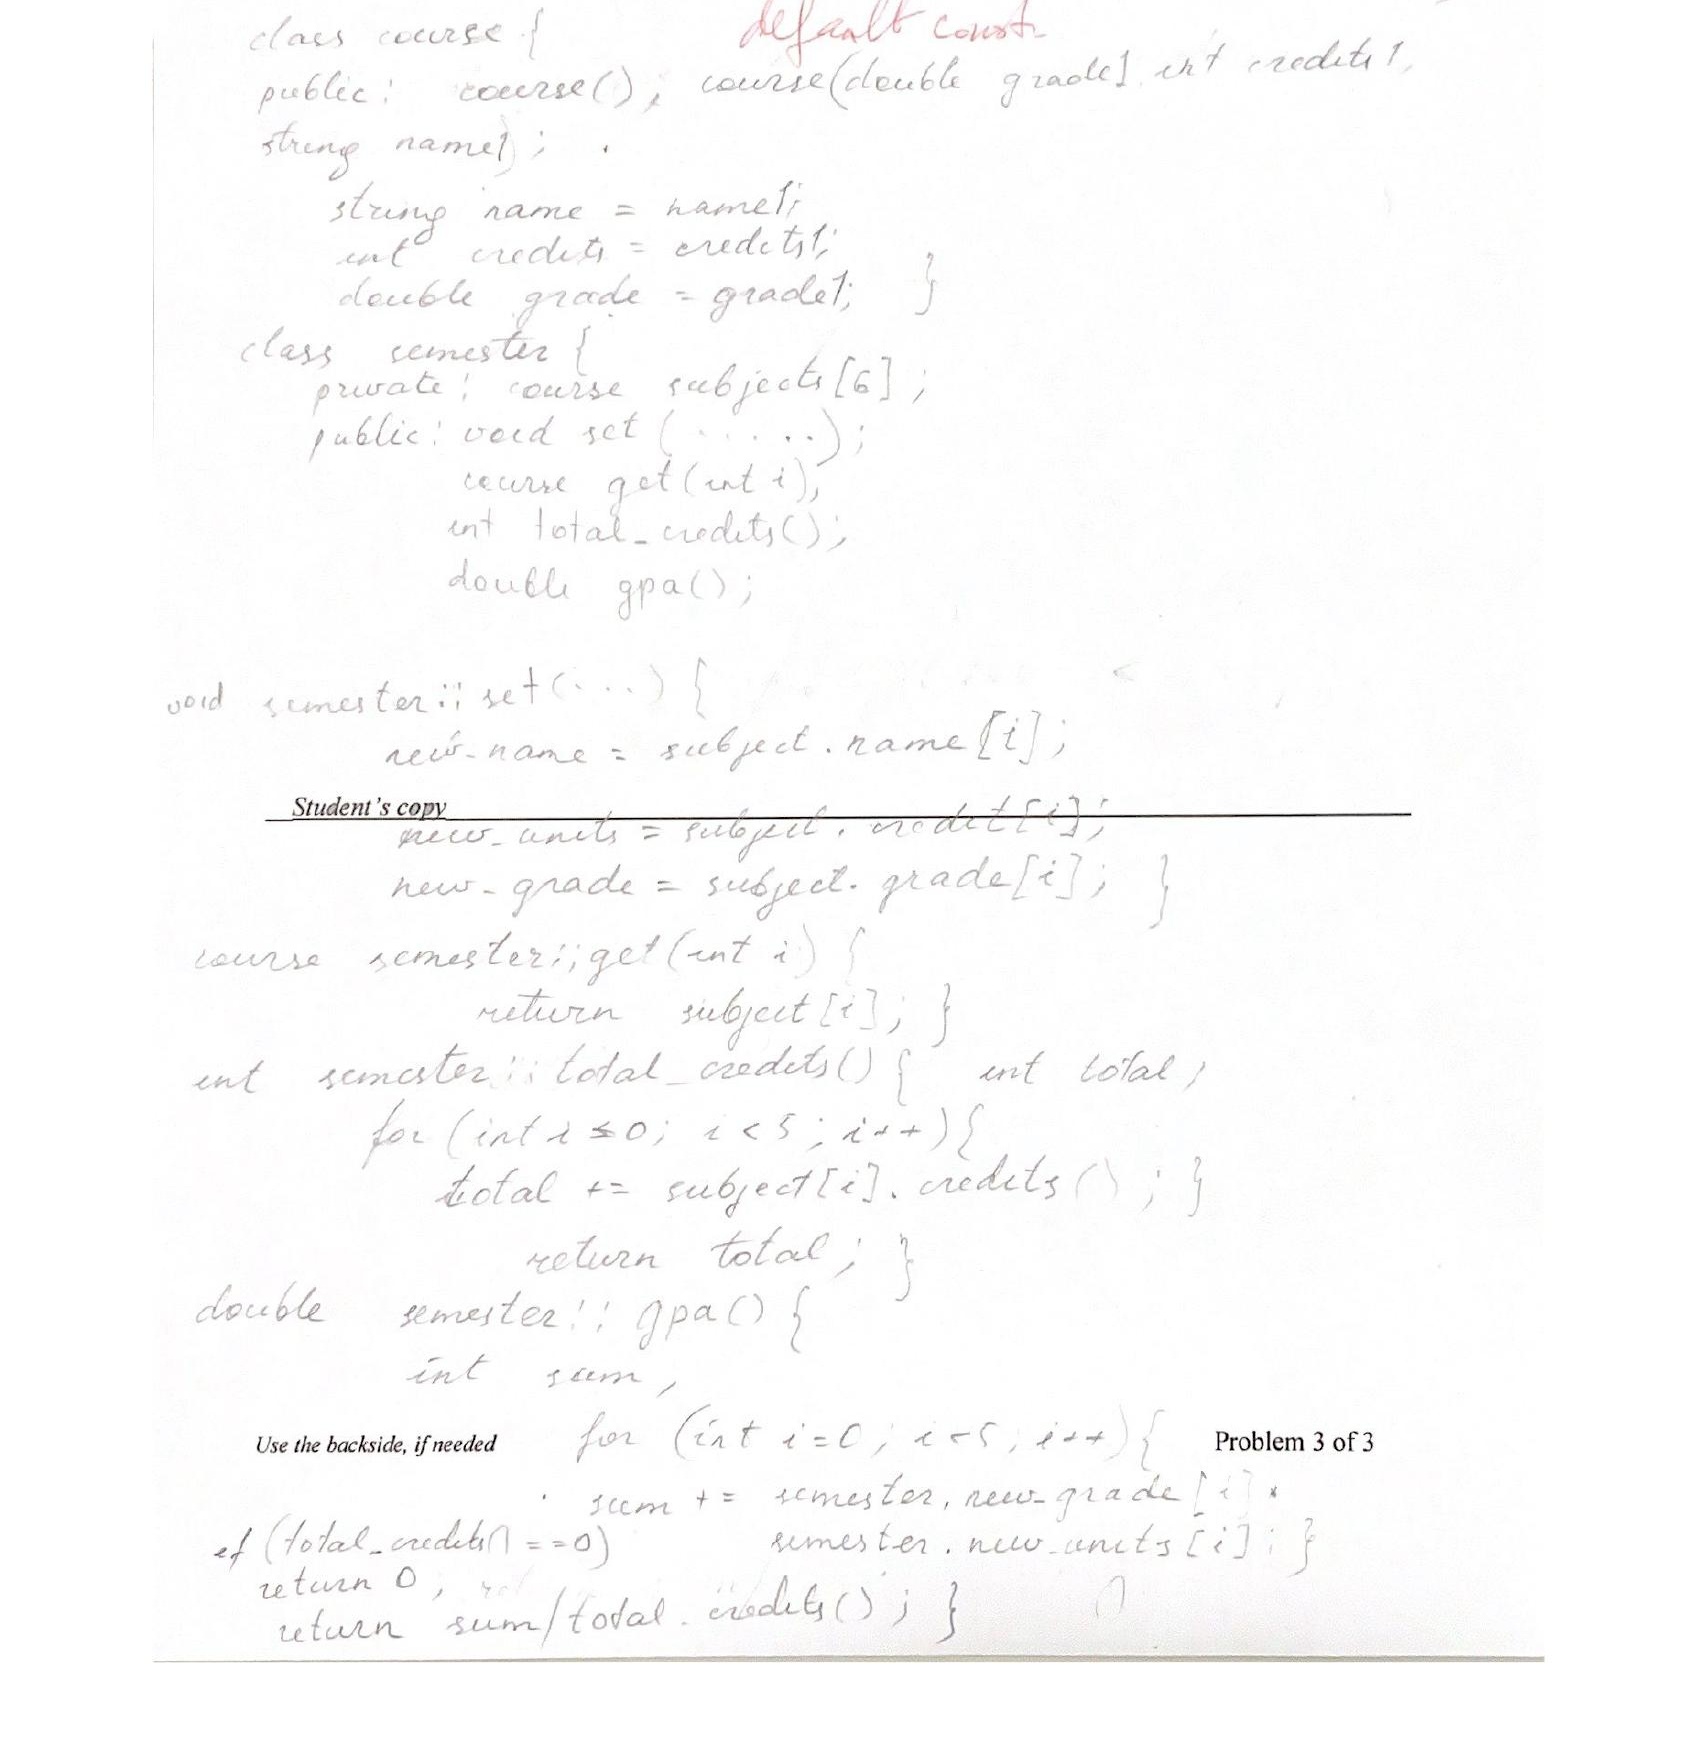 class course {
default const.
public: course(); course(double grade1, int credits1,
string name1);
string name = name1;
int credits = credits1;
double grade = grade1; }
class semester {
private: course subjects[6];
public: void set (.....);
course get(int i);
int total_credits();
double gpa();
void semester:: set(...) {
new_name = subject.name[i];
Student's copy
new_units = subject.credit[i];
new_grade = subject.grade[i]; }
course semester::get(int i) {
return subject[i]; }
int semester::total_credits() { int total;
for (int i ≤ 0; i < 5; i++){
total += subject[i].credits(); }
return total; }
double semester::gpa() {
int sum,
Use the backside, if needed for (int i=0; i<5; i++){ Problem 3 of 3
sum += semester.new_grade[i] *
if (total_credits() ==0) semester.new_units[i]; }
return 0;
return sum/total_credits(); }